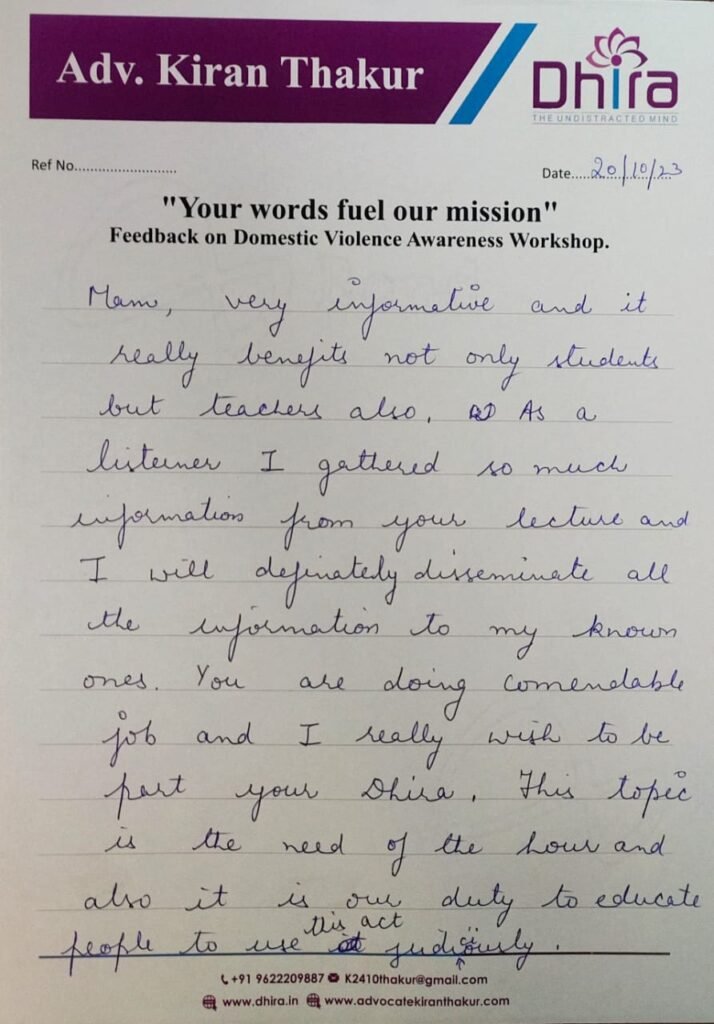 Adv. Kiran Thakur
Dhira
THE UNDISTRACTED MIND
Ref No..........................
Date.....20/10/23
"Your words fuel our mission"
Feedback on Domestic Violence Awareness Workshop.
Mam, very informative and it
really benefits not only students
but teachers also. As a
listerner I gathered so much
information from your lecture and
I will definately disseminate all
the information to my known
ones. You are doing comendable
job and I really wish to be
part your Dhira. This topic
is the need of the hour and
also it is our duty to educate
people to use this act judiciously.
+91 9622209887 K2410thakur@gmail.com
www.dhira.in www.advocatekiranthakur.com